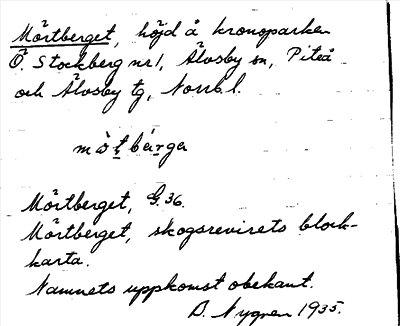 Mörtberget, höjd å kronoparken
Ö. Stockberg nr 1, Älvsby sn, Piteå
och Älvsby tg, Norrb. l.
mö̀ṭbä́rga
Mörtberget, G. 36.
Mörtberget, skogsrevirets block-
karta.
Namnets uppkomst obekant.
D. Nygren 1935.